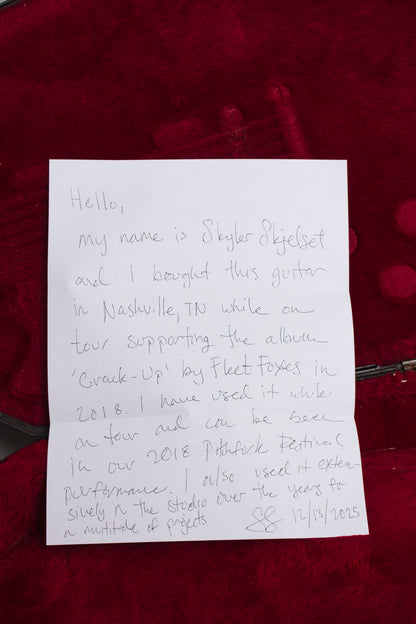 Hello,
my name is Skyler Skjelset
and I bought this guitar
in Nashville, TN while on
tour supporting the album
'Crack-Up' by Fleet Foxes in
2018. I have used it while
on tour and can be seen
in our 2018 Pitchfork Festival
performance. I also used it exten-
sively in the studio over the years for
a multitude of projects
SS 12/13/2025